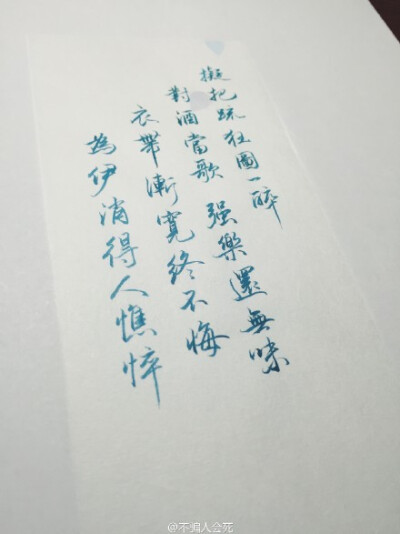 擬把踈狂圖一醉
對酒當歌 强樂還無味
衣帶漸寬終不悔
為伊消得人憔悴
@不骗人会死